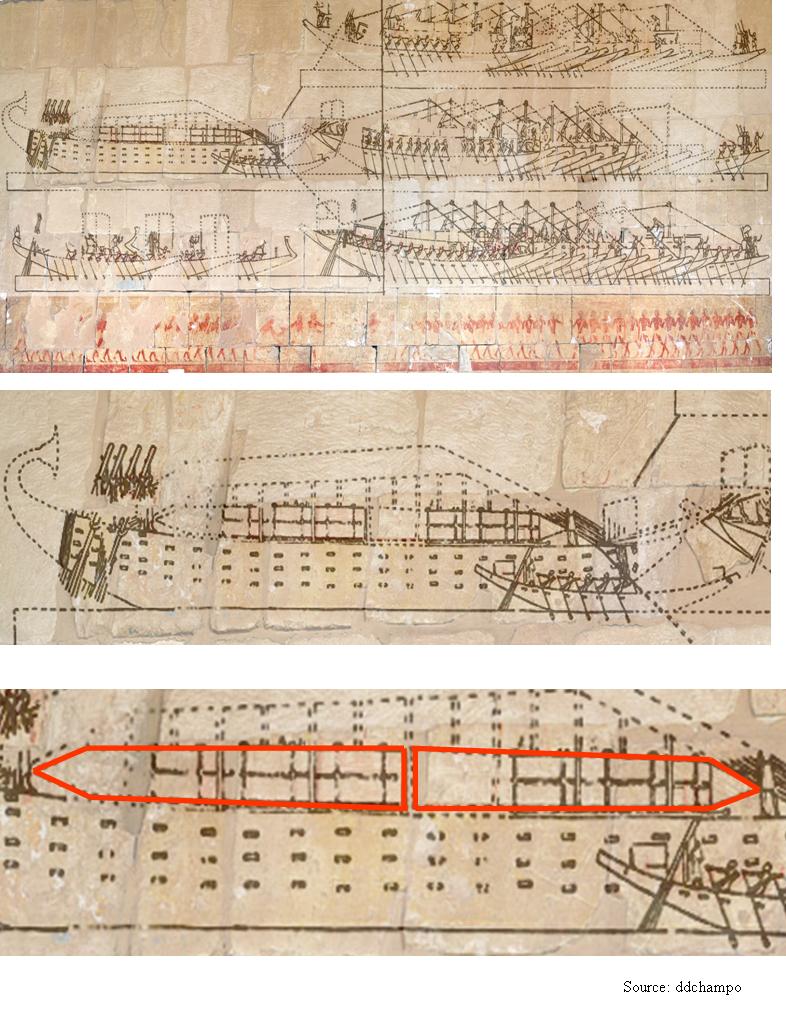 Source: ddchampo